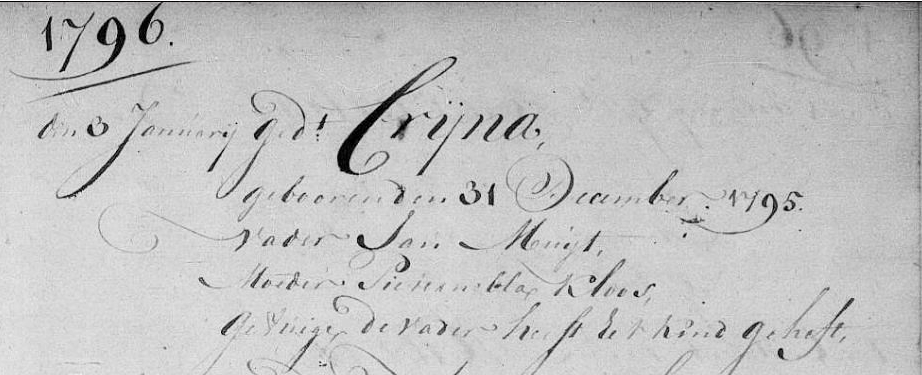 1796.
den 3 January ged.t Crijna,
geboorenden 31 December 1795.
vader Jan Muijt,
Moeder Kloos,
Getuige, de vader heeft het kind geheft,